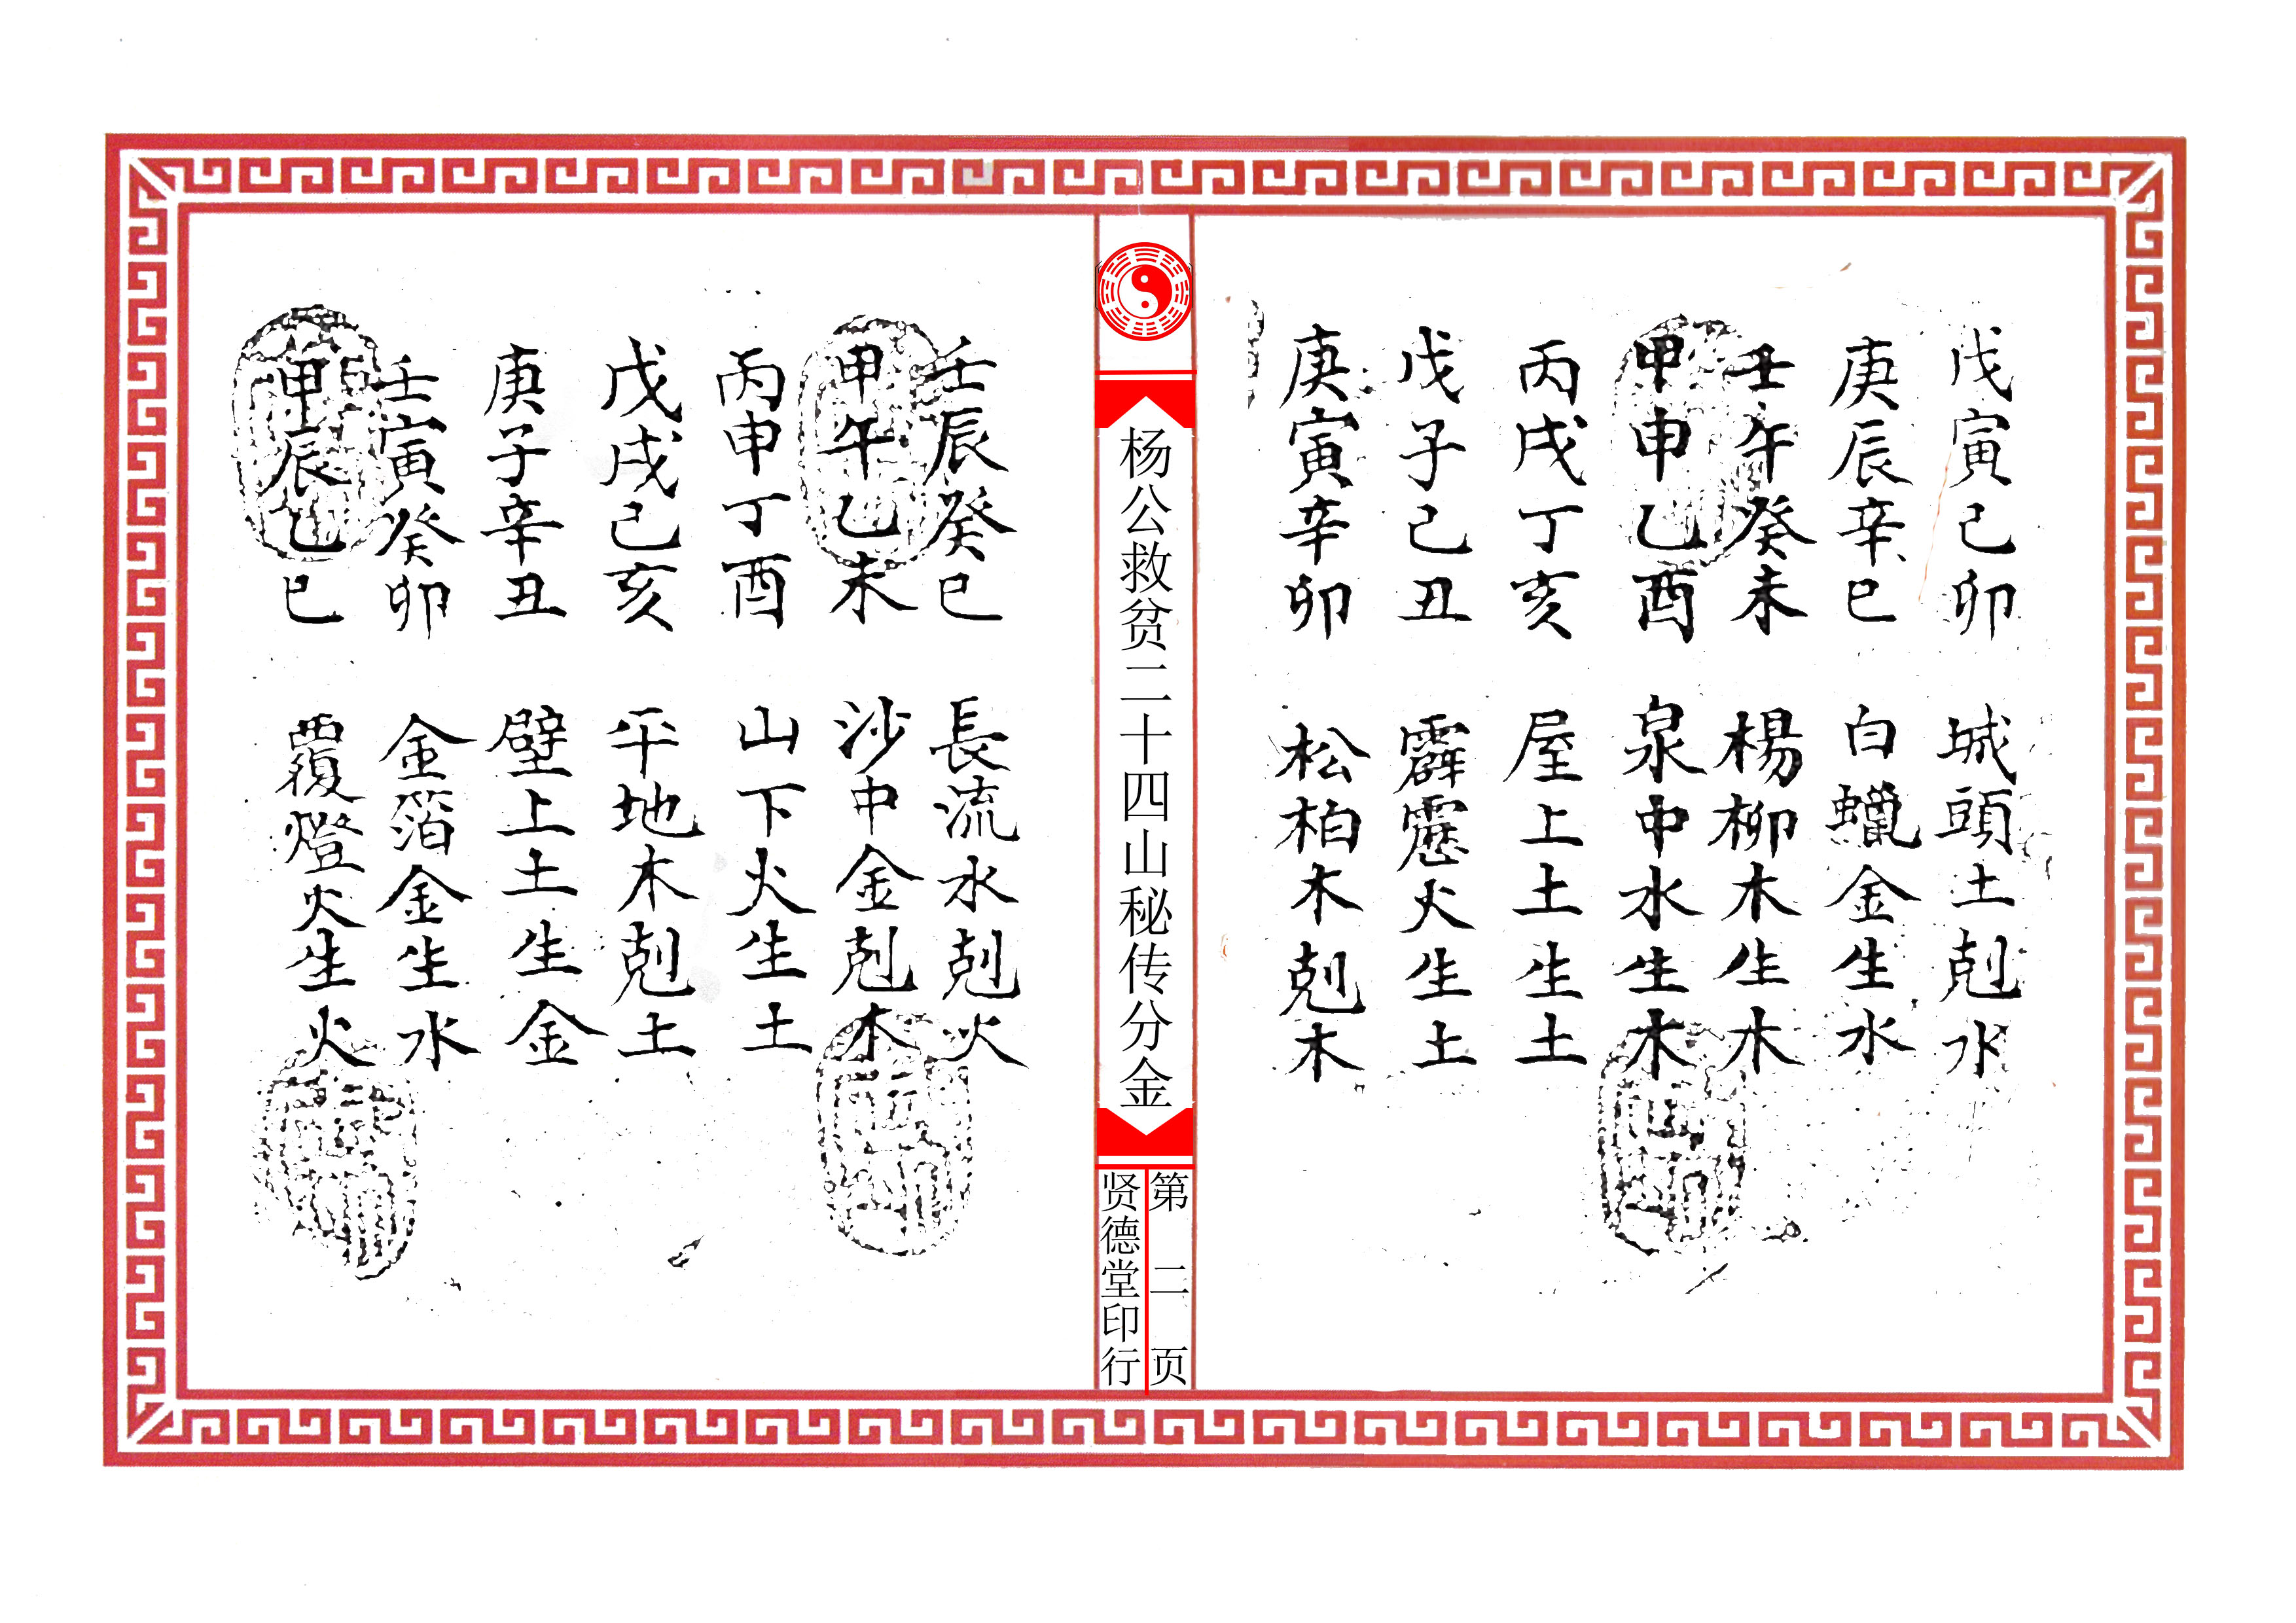 戊寅己卯　城頭土剋水
庚辰辛巳　白蠟金生水
壬午癸未　楊柳木生木
甲申乙酉　泉中水生木
丙戌丁亥　屋上土生土
戊子己丑　霹靂火生土
庚寅辛卯　松柏木剋木
杨公救贫二十四山秘传分金
第二页
贤德堂印行
壬辰癸巳　長流水剋火
甲午乙未　沙中金剋木
丙申丁酉　山下火生土
戊戌己亥　平地木剋土
庚子辛丑　壁上土生金
壬寅癸卯　金箔金生水
甲辰乙巳　覆燈火生火